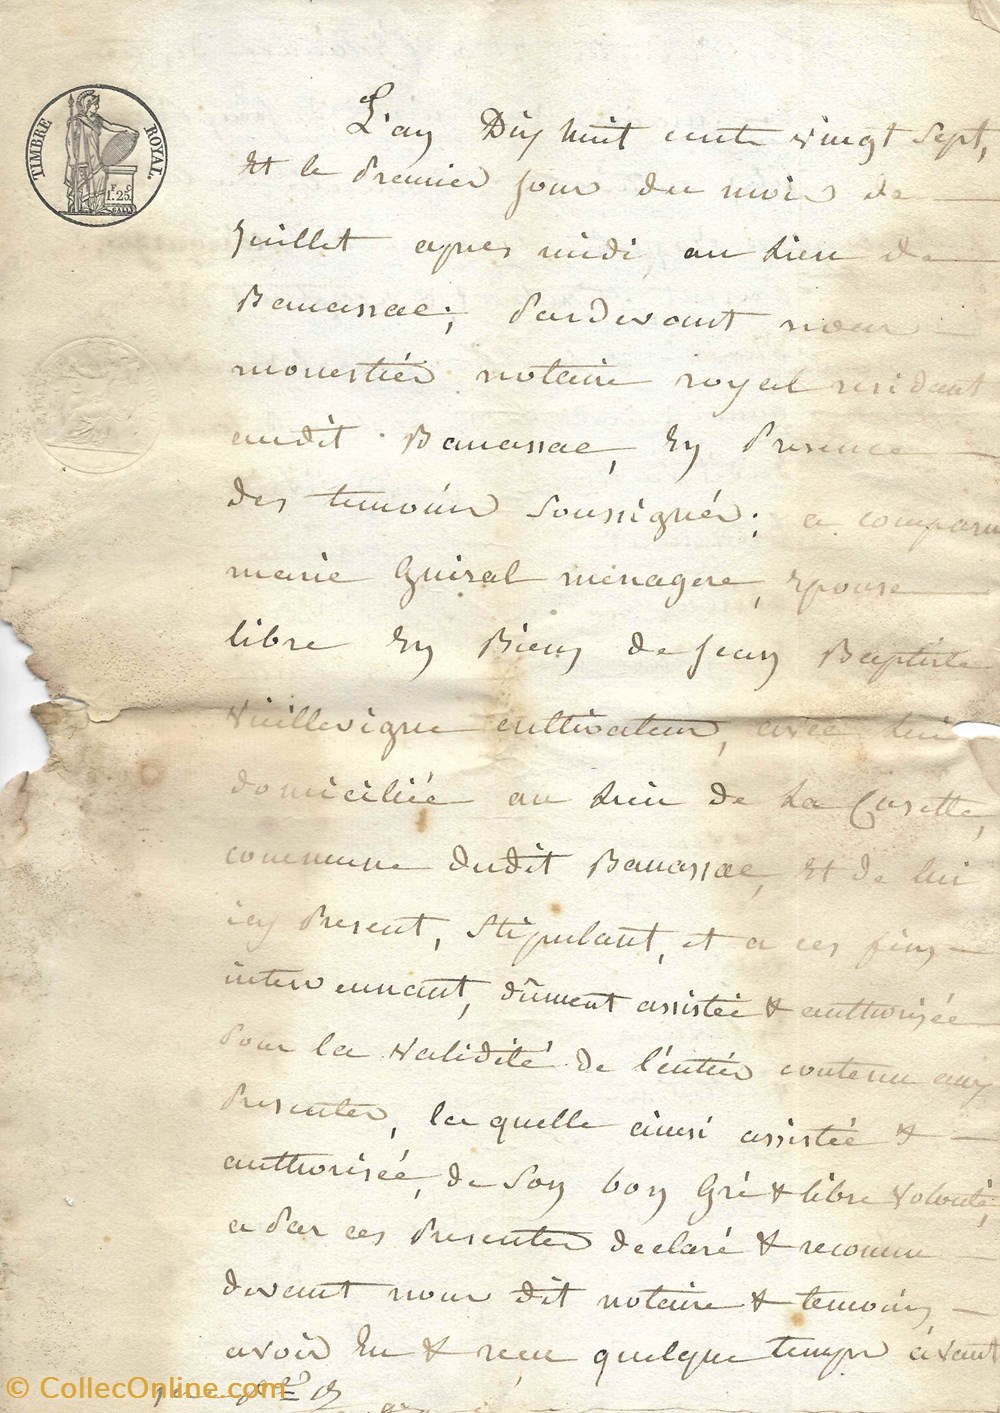 TIMBRE ROYAL.
F. C.
1.25.
L'an Dix huit cents vingt Sept,
Et le Premier Jour du mois de
Juillet après midi, au Lieu de
Banassac; Pardevant nous
monestiér notaire royal residant
audit Banassac, En Presence
des temoins Soussignés; a comparu
marie Guiral menagere, Epouse
libre En Biens de Jean Baptiste
Vieillevigne cultivateur, avec Lui
domiciliée au Lieu de La Caselle,
commune dudit Banassac, Et de lui
icy Present, Stipulant, et a ces fins
intervennant, dûment assistée & authorisée
Pour la Validité de l'entiér contenu aux
Presentes, la quelle ainsi assistée &
authorisée, de Son bon Gré & libre Volonté,
a Par ces Presentes declaré & reconnu
devant nous dit notaire & temoins
avoir Eu & reçu quelque temps avant
© CollecOnline.com